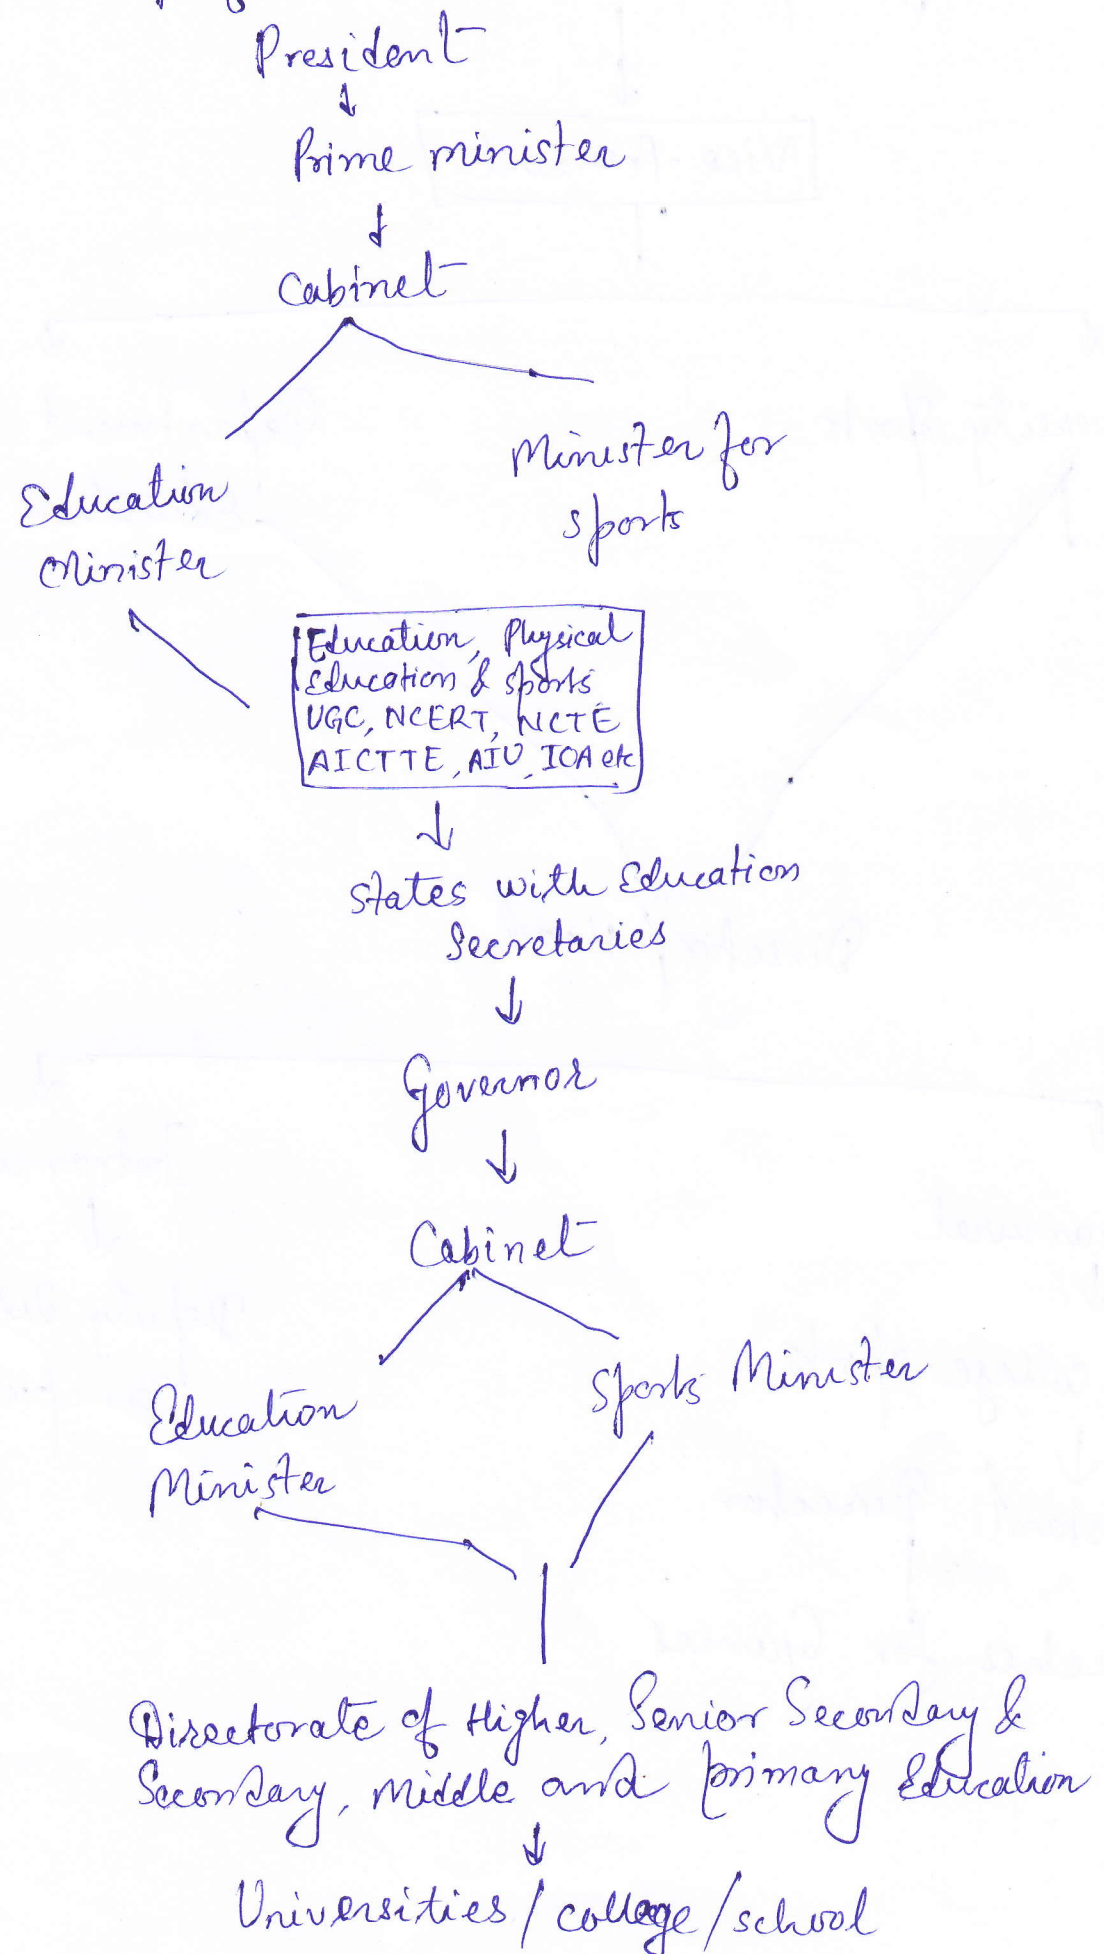 President
Prime minister
Cabinet
Minister for
sports
Education
Minister
Education, Physical
Education & sports
UGC, NCERT, NCTE
AICTTE, AIU, IOA etc
States with Education
Secretaries
Governor
Cabinet
Sports Minister
Education
Minister
Directorate of Higher, Senior Secondary &
Secondary, Middle and primary Education
Universities / college / school